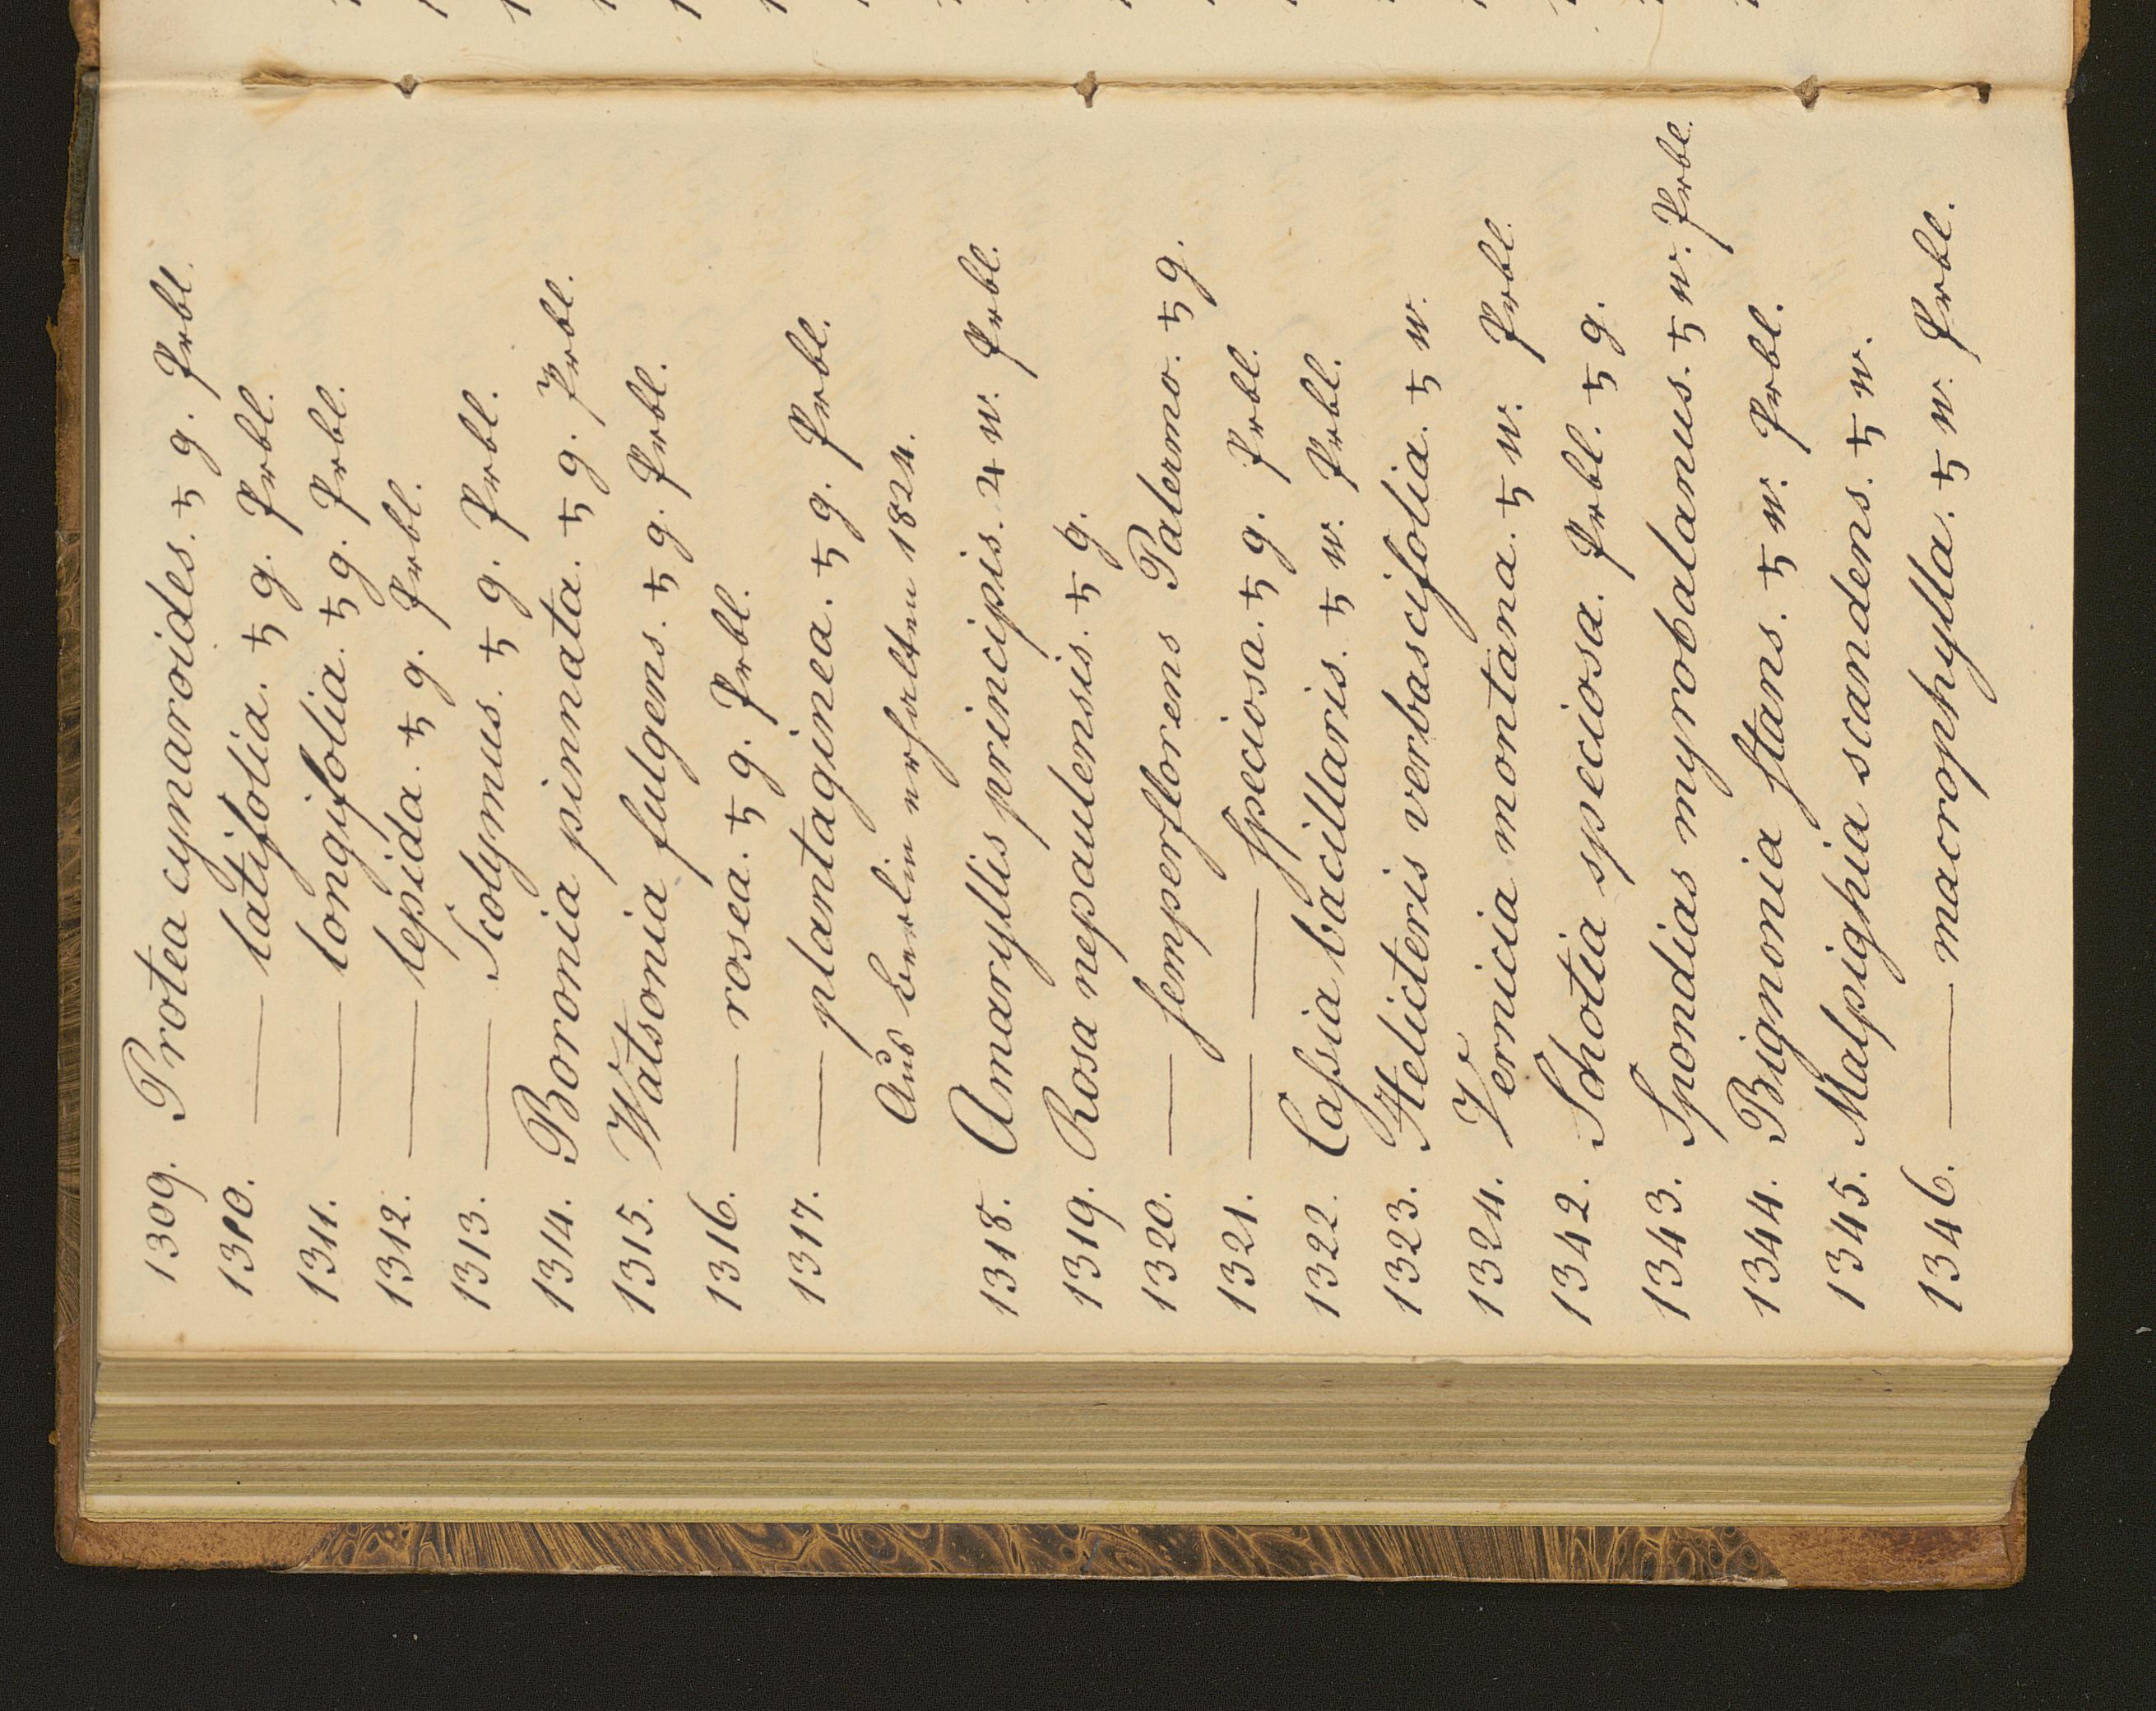 1309. Protea cynaroides. ♄ g. Prbl.
1310. — latifolia. ♄ g. Prbl.
1311. — longifolia. ♄ g. Prbl.
1312. — lepida. ♄ g. Prbl.
1313. — Scolymus. ♄ g. Prbl.
1314. Boronia pinnata. ♄ g. Prbl.
1315. Watsonia fulgens. ♄ g. Prbl.
1316. — rosea. ♄ g. Prbl.
1317. — plantaginea. ♄ g. Prbl.
Aus Berlin erhalten 1824.
1318. Amaryllis principis. ♃ w. Prbl.
1319. Rosa nepaulensis. ♄ g.
1320. — semperflorens Palermo. ♄ g.
1321. — — speciosa. ♄ g. Prbl.
1322. Caſsia bacillaris. ♄ w. Prbl.
1323. Helicteris verbascifolia. ♄ w.
1324. Vernicia montana. ♄ w. Prbl.
1342. Schotia speciosa. Prbl. ♄ g.
1343. Spondias myrobalanus. ♄ w. Prbl.
1344. Bignonia stans. ♄ w. Prbl.
1345. Malpighia scandens. ♄ w.
1346. — macrophylla. ♄ w. Prbl.